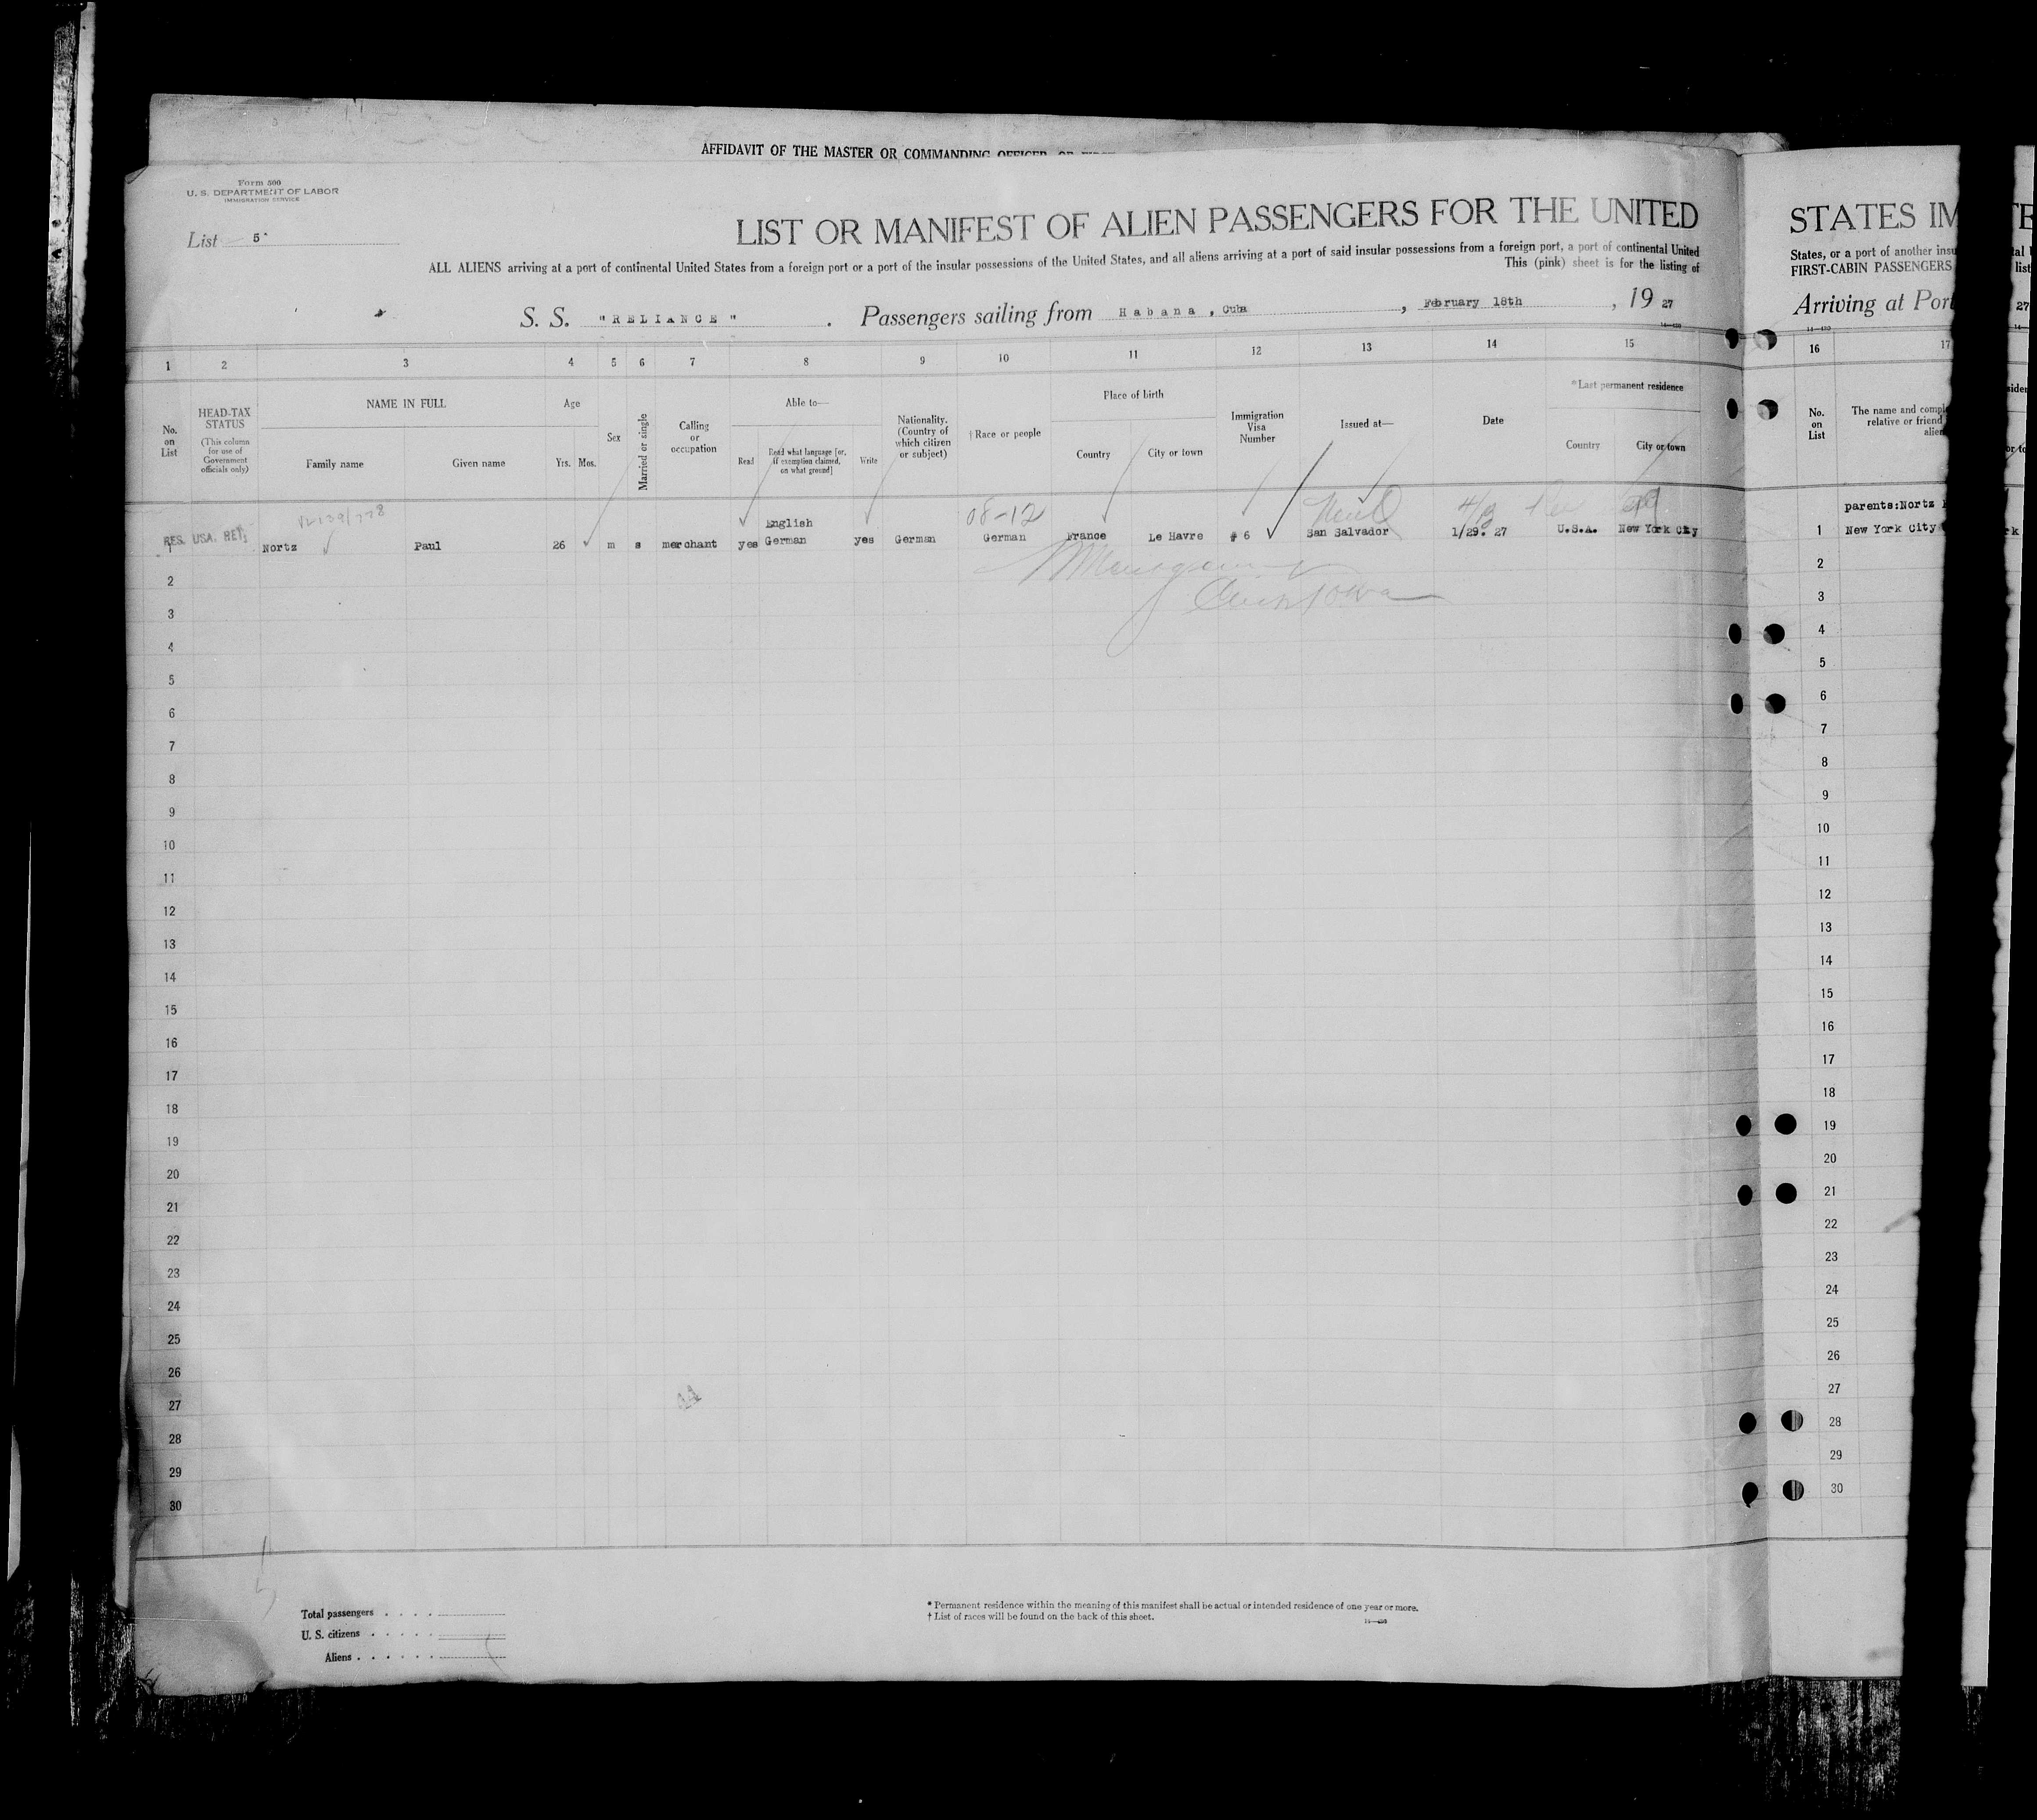 AFFIDAVIT OF THE MASTER OR COMMANDING OFFICER, OR
Form 500
U. S. DEPARTMENT OF LABOR
IMMIGRATION SERVICE
List 5
LIST OR MANIFEST OF ALIEN PASSENGERS FOR THE UNITED
ALL ALIENS arriving at a port of continental United States from a foreign port or a port of the insular possessions of the United States, and all aliens arriving at a port of said insular possessions from a foreign port, a port of continental United
This (pink) sheet is for the listing of
S. S. "RELIANCE". Passengers sailing from Habana, Cuba, February 18th, 19 27
1 2 3 4 5 6 7 8 9 10 11 12 13 14 15
No. on List
HEAD-TAX STATUS
(This column for use of Government officials only)
NAME IN FULL
Family name
Given name
Age
Yrs. Mos.
Sex
Married or single
Calling or occupation
Able to—
Read
Read what language [or, if exemption claimed, on what ground]
Write
Nationality. (Country of which citizen or subject)
† Race or people
Place of birth
Country
City or town
Immigration Visa Number
Issued at—
Date
*Last permanent residence
Country
City or town
RES. USA. RET.
08-12
1 Nortz Paul 26 m s merchant yes English German yes German German France Le Havre # 6 San Salvador 1/29. 27 U.S.A. New York City
2
3
4
5
6
7
8
9
10
11
12
13
14
15
16
17
18
19
20
21
22
23
24
25
26
27
28
29
30
Total passengers
U. S. citizens
Aliens
* Permanent residence within the meaning of this manifest shall be actual or intended residence of one year or more.
† List of races will be found on the back of this sheet.
STATES IM
States, or a port of another insu
FIRST-CABIN PASSENGERS
Arriving at Port
16 17
No. on List
The name and compl
relative or friend
alien
parents:Nortz
1 New York City
2
3
4
5
6
7
8
9
10
11
12
13
14
15
16
17
18
19
20
21
22
23
24
25
26
27
28
29
30